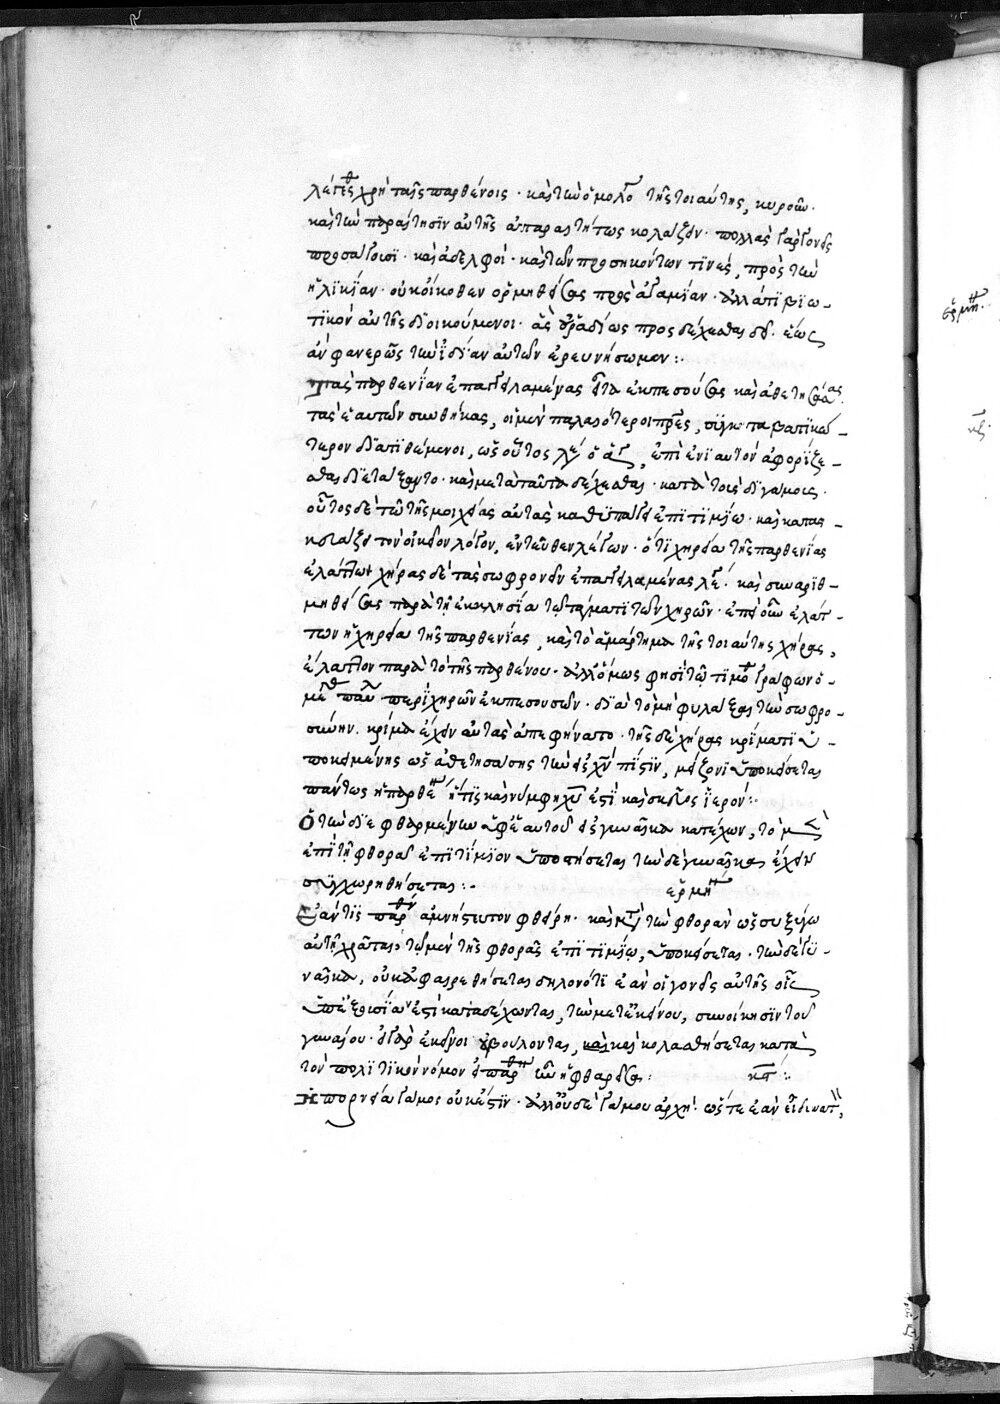 λέγεσθαι χρὴ ταῖς παρθένοις · καὶ τὴν ὁμολογίαν τῆς τοιαύτης, κυροῦν ·
καὶ τὴν παράστησιν αὐτῆς ἀπαραιτήτως κολάζειν · πολλὰς γὰρ γονεῖς
προσάγουσι · καὶ ἀδελφοὶ · καὶ τῶν προσηκόντων τινὲς, πρὸ τῆς
ἡλικίας · οὐκ οἴκοθεν ὁρμηθείσας πρὸς ἀγαμίαν · ἀλλά τι βιω-
τικὸν αὐτῆς διοικούμενοι · ἃς οὐ ῥαδίως προσδέχεσθαι δεῖ · ἕως
ἂν φανερῶς τὴν ἰδίαν αὐτῶν ἐρευνήσωμεν :·
Τὰς παρθενίαν ἐπαγγειλαμένας εἶτα ἐκπεσούσας καὶ ἀθετησάσας
τὰς ἑαυτῶν συνθήκας, οἱ μὲν παλαιότεροι πατέρες, συγκαταβατικώ-
τερον διατιθέμενοι, ὡς οὗτος λέγει ὁ ἅγιος, ἐπὶ ἐνιαυτὸν ἀφορίζε-
σθαι διετάξαντο · καὶ μετὰ ταῦτα δέχεσθαι · κατὰ τοὺς διγάμους ·
οὗτος δὲ τῷ τῆς μοιχείας αὐτὰς καθυπάγει ἐπιτιμίῳ · καὶ κατασ-
κευάζει τὸν οἰκεῖον λόγον, ἐντεῦθεν λέγων · ὅτι χηρεία τῆς παρθενίας
ἐλάττων χήρας δὲ τὰς σωφρονεῖν ἐπαγγειλαμένας λέγει · καὶ συναριθ-
μηθείσας παρὰ τῇ ἐκκλησία τῷ τάγματι τῶν χηρῶν · ἐπεὶ οὖν ἐλάτ-
των ἡ χηρεία τῆς παρθενίας, καὶ τὸ ἁμάρτημα τῆς τοιαύτης χήρας,
ἔλαττον παρὰ τὸ τῆς παρθένου · ἀλλ' ὅμως φησὶ τῷ τιμοθέῳ γράφων ὁ
μέγας παῦλος περὶ χηρῶν ἐκπεσουσῶν · διὰ τὸ μὴ φυλάξαι τὴν σωφρο-
σύνην · κρῖμα ἔχειν αὐτὰς ἀπεφήνατο · τῆς δὲ χήρας κρίματι ὑ-
ποκειμένης ὡς ἀθετησάσης τὴν ἐξ ἀρχῆς πίστιν, μείζονι ὑποκείσεται
πάντως ἡ παρθένος ἥτις καὶ νύμφη χριστοῦ ἐστὶ καὶ σκεῦος ἱερόν :·
Ὁ τὴν διεφθαρμένην ὑφ' ἑαυτοῦ εἰς γυναῖκα κατέχων, τὸ μὲν
ἐπὶ τῇ φθορᾷ ἐπιτίμιον ὑποστήσεται τὴν δὲ γυναῖκα ἔχειν
συγχωρηθήσεται :·
ἑρμη
Ἐάν τις παρθένον ἀμνήστευτον φθείρῃ · καὶ μετὰ τὴν φθορὰν ὡς συζύγῳ
αὐτῇ χρᾶται · τῷ μὲν τῆς φθορᾶς ἐπιτιμίῳ, ὑποκείσεται · τὴν δὲ γυ-
ναῖκα, οὐκ ἀφαιρεθήσεται δηλονότι ἐὰν οἱ γονεῖς αὐτῆς οἷς
ὑπεξουσία ἐστὶ καταδέχωνται, τὴν μετ' ἐκείνου, συνοίκησιν τοῦ
γυναίου · εἰ γὰρ ἐκεῖνοι οὐ βούλονται, καὶ κολασθήσεται κατὰ
τὸν πολιτικὸν νόμον εἰ παρθένος ἦν ἡ φθαρεῖσα :
κϛ :·
Ἡ πορνεία γάμος οὐκ ἔστιν · ἀλλ' οὐδὲ γάμου ἀρχή · ὥστε ἐὰν ᾖ δυνατὸν,
ἑρμη ·